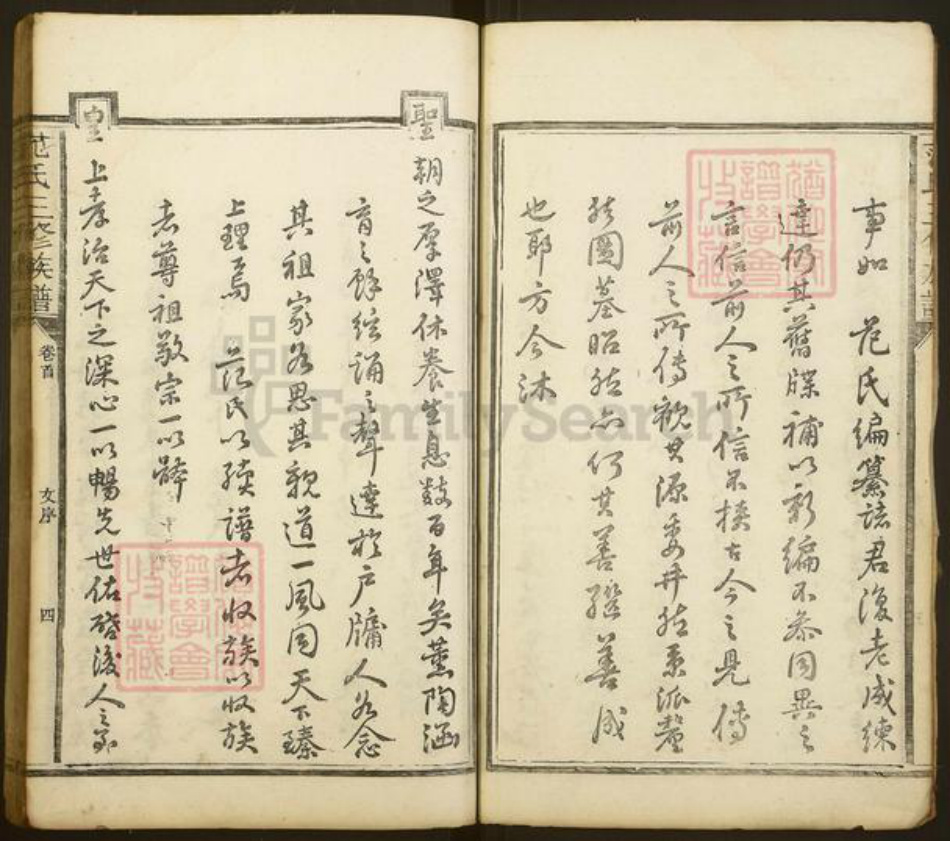 事如 范氏編纂諸君復老成練
達仍其舊牒補以新編不參同異之
言信前人之所信不挾古今之見傳
前人之所傳親其源委井然系派釐
然圖墓昭然亦何其善繼善成
也耶方今沐
聖朝之厚澤休養生息數百年矣薰陶涵
育之餘絃誦之聲達於户牖人各念
其祖家各思其親道一風同天下臻
上理焉 范氏以續譜者收族以收族
者尊祖敬宗一以辭
皇上孝治天下之深心一以暢先世佑啓後人之
范氏三修族譜
卷首
文序
四
譜學會
收藏
譜學會
收藏
FamilySearch